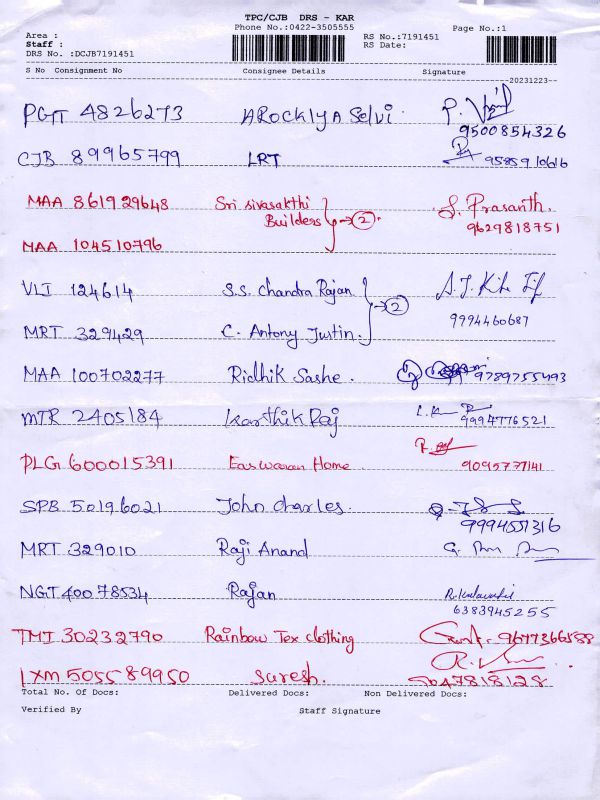 TPC/CJB DRS - KAR
Phone No.:0422-3505555
Page No.:1
Area :
Staff :
RS No.:7191451
DRS No. :DCJB7191451
RS Date:
S No Consignment No Consignee Details Signature
20231223
PGT 4826273 AROCKIYA Selvi
9500854326
CJB 89965799 LRT 9585910616
MAA 861929648 Sri sivasakthi Builders → 2 S. Prasanth.
9629818751
MAA 104510796
VLI 124614 S.S. Chandra Rajan → 2
9994460687
MRT 329429 C. Antony Justin.
MAA 100702277 Ridhik Sashe. 9789755493
MTR 2405184 Karthik Raj 9994776521
PLG 600015391 Easwaran Home 9095777141
SPB 50196021 John charles.
9994557316
MRT 329010 Raji Anand
NGT 40078534 Rajan
6383945255
TMI 30232790 Rainbow Tex clothing 9677366588
IXM 505589950 Suresh. 5047818128
Total No. Of Docs: Delivered Docs: Non Delivered Docs:
Verified By Staff Signature